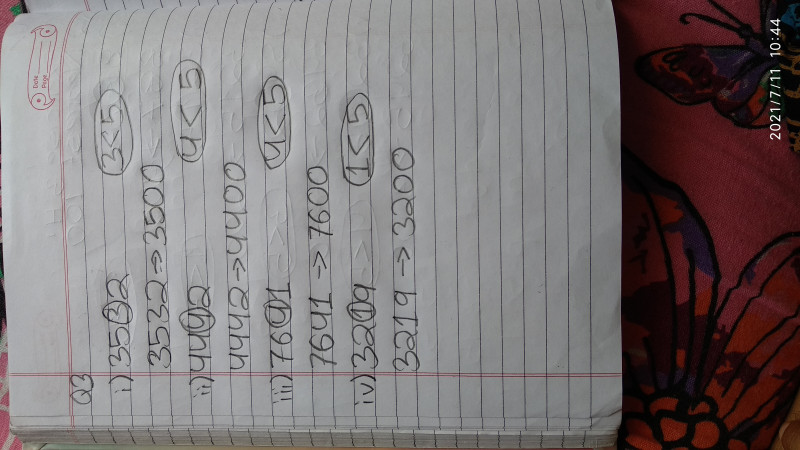 Date
Page
Q3
i) 3532 3<5
3532 → 3500
ii) 4442 4<5
4442 → 4400
iii) 7641 4<5
7641 → 7600
iv) 3219 1<5
3219 → 3200
2021/7/11 10:44